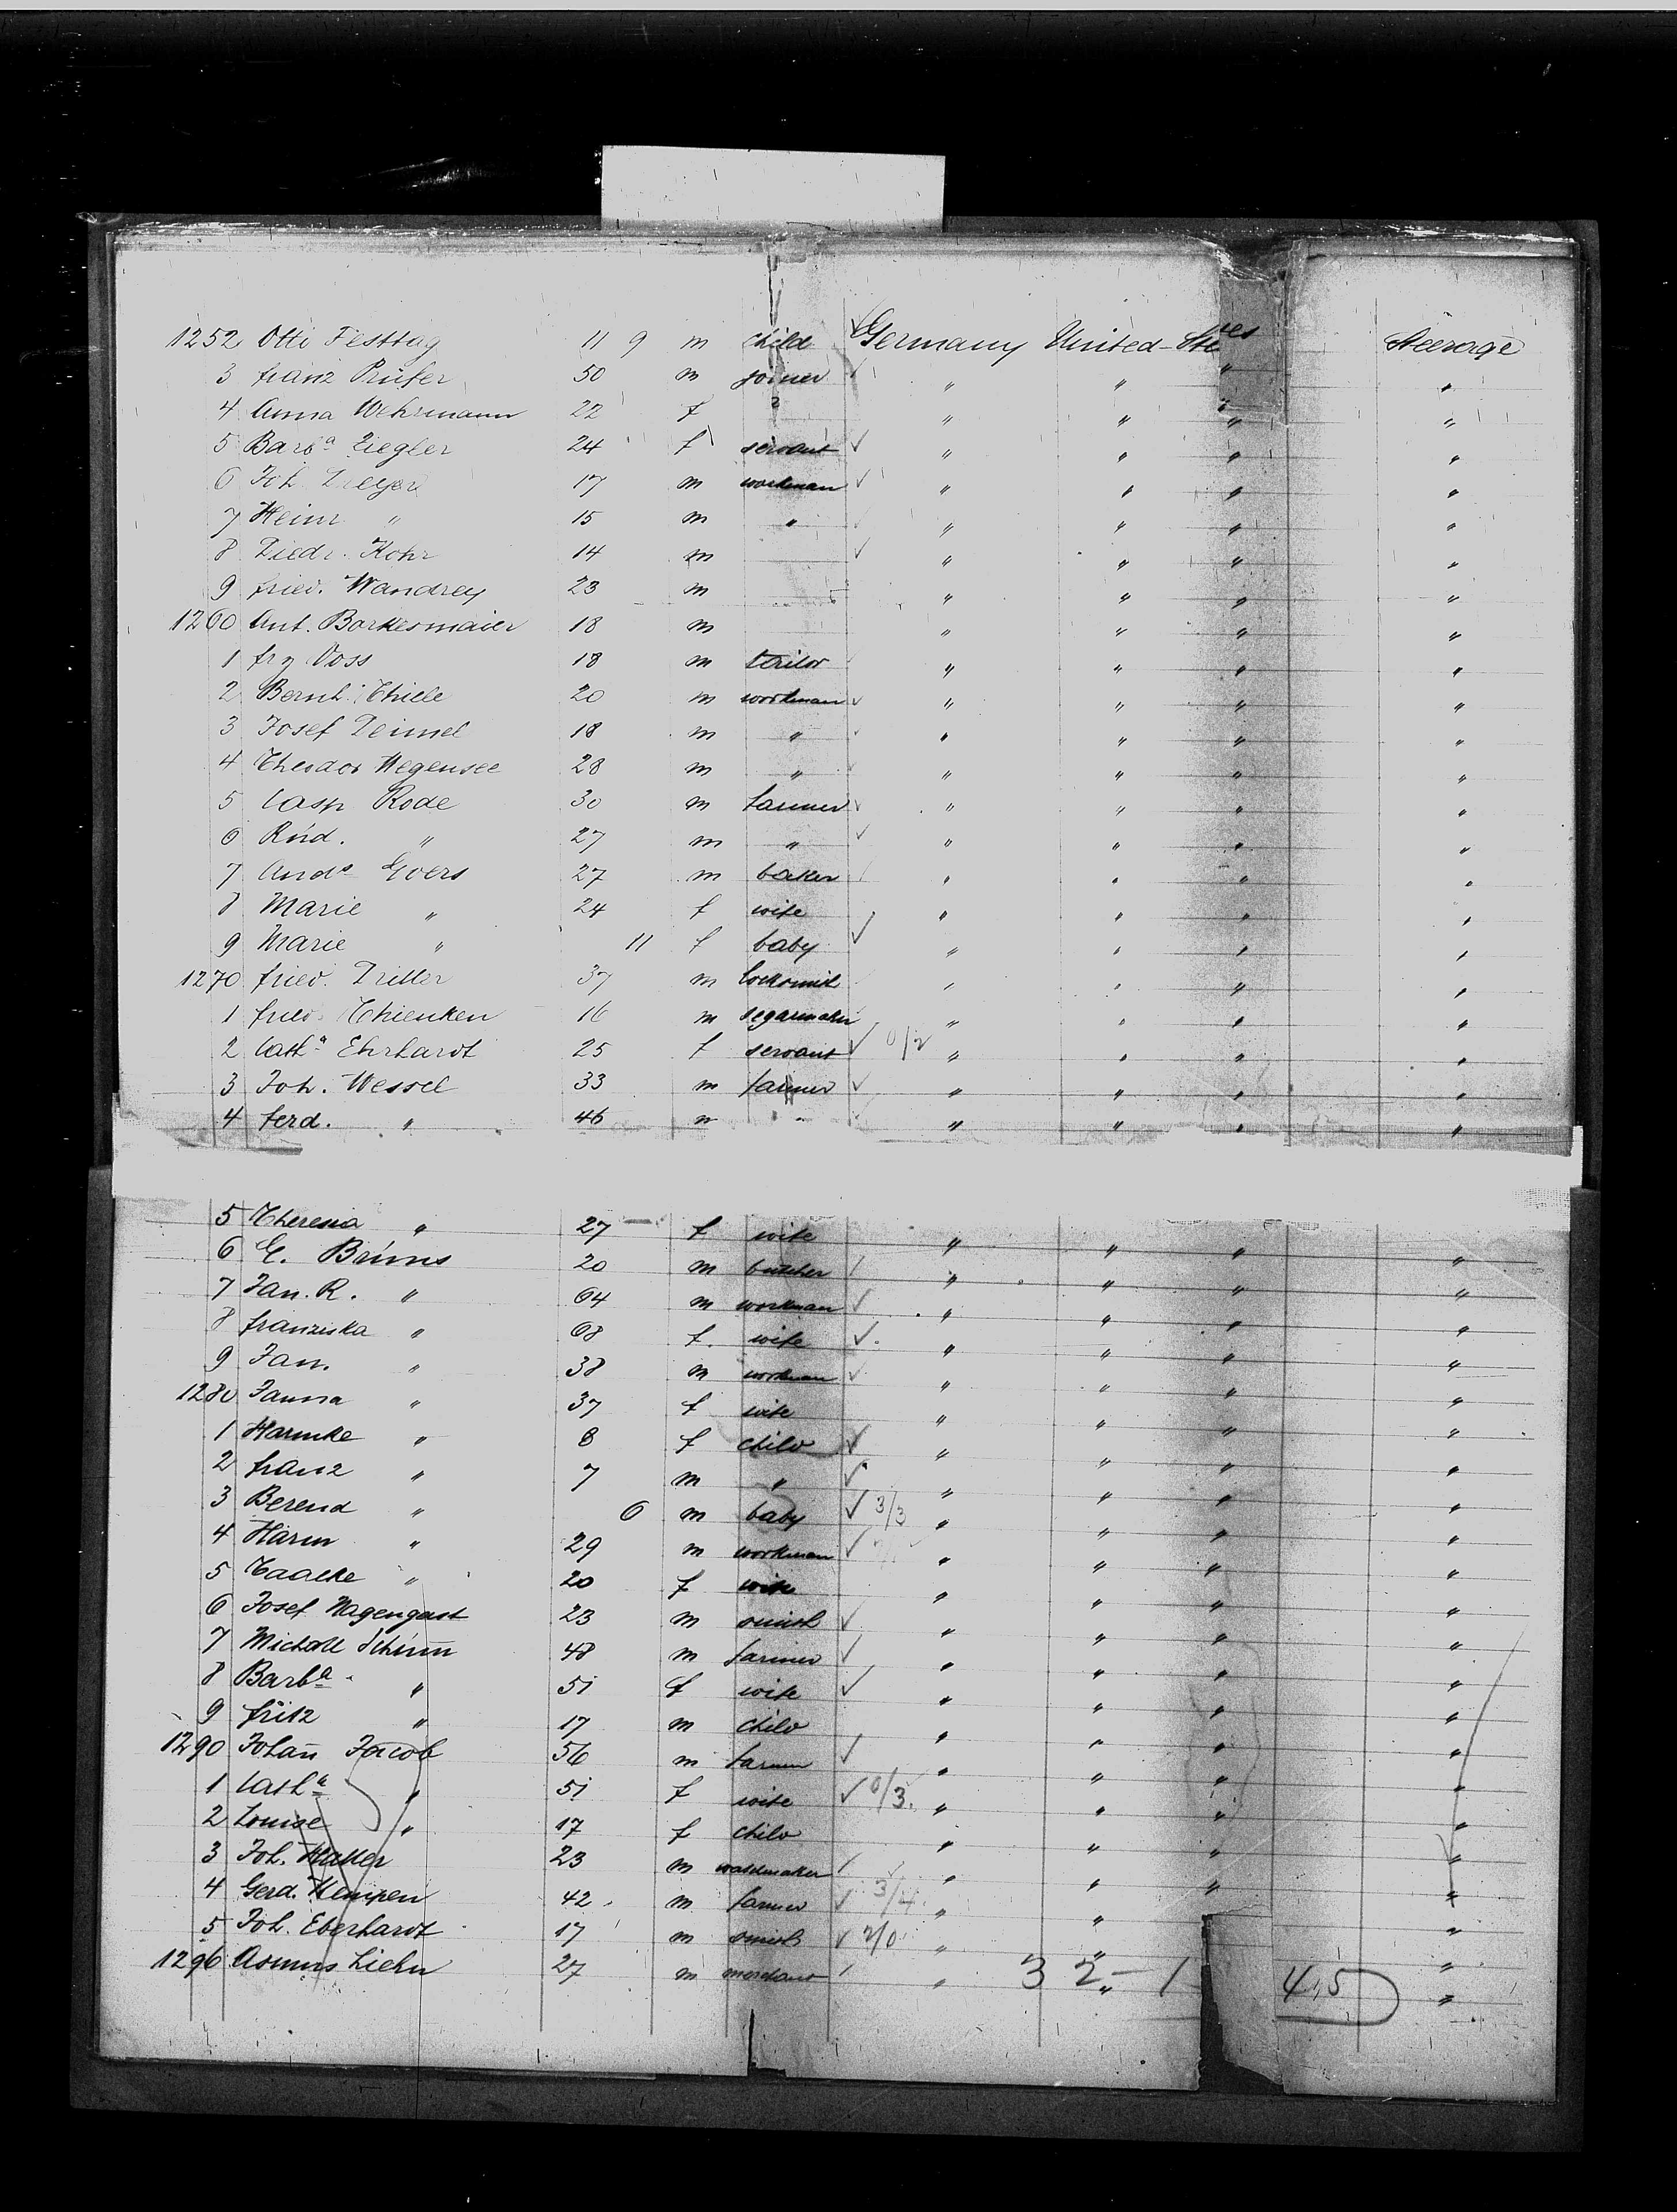 1252 Otti Festtag 11 9 m child Germany United-States Steerage
3 Franz Prüfer 50 m joiner " " " "
4 Anna Wehrmann 22 f " " " "
5 Barbª Ziegler 24 f servant " " " "
6 Joh. Dreyer 17 m workman " " " "
7 Heinr " 15 m " " " " "
8 Diedr. Kohr 14 m " " " "
9 Fried. Wandrey 23 m " " " "
1260 Ant. Borkesmaier 18 m " " " "
1 Frz Voss 18 m tailor " " " "
2 Bernh. Thiele 20 m workman " " " "
3 Josef Deimel 18 m " " " " "
4 Theodor Wegensee 28 m " " " " "
5 Casp Rode 30 m farmer " " " "
6 Rud. " 27 m " " " " "
7 Andˢ Goers 27 m baker " " " "
8 Marie " 24 f wife " " " "
9 Marie " 11 f baby " " " "
1270 Fried. Driller 37 m locksmith " " " "
1 Fried. Thienken 16 m segarmaker " " " "
2 Cathª Ehrhardt 25 f servant 0/2 " " " "
3 Joh. Wessel 33 m farmer " " " "
4 Ferd. " 46 m " " " " "
5 Theresia " 27 f wife " " " "
6 E. Brúns 20 m butcher " " " "
7 Jan. R. " 64 m workman " " " "
8 Franziska " 68 f. wife " " " "
9 Jan. " 38 m workman " " " "
1280 Janna " 37 f wife " " " "
1 Harmke " 8 f child " " " "
2 Franz " 7 m " " " " "
3 Berend " 6 m baby 3/3 " " " "
4 Harm " 29 m workman " " " "
5 Taalke " 20 f wife " " " "
6 Josef Hagengast 23 m smith " " " "
7 Michael 48 m farmer " " " "
8 Barbª " 51 f wife " " " "
9 Fritz " 17 m child " " " "
1290 Johan̄ Jacob 56 m farmer " " " "
1 Cathª " 51 f wife 0/3. " " " "
2 Louise " 17 f child " " " "
3 Joh. Haller 23 m watchmaker " " " "
4 Gerd. Kempen 42 m farmer 3/4. " " "
5 Joh. Eberhardt 17 m smith 2/0 " " "
1296 Asmus Liehn 27 m merchant " 3 2 " - 1 4,5 "